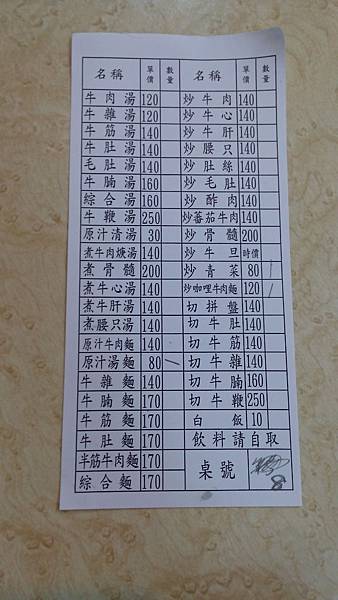 名稱 單價 數量 名稱 單價 數量
牛肉湯 120 炒牛肉 140
牛雜湯 120 炒牛心 140
牛筋湯 140 炒牛肝 140
牛肚湯 140 炒腰只 140
毛肚湯 140 炒肚絲 140
牛腩湯 160 炒毛肚 140
綜合湯 160 炒酢肉 140
牛鞭湯 250 炒蕃茄牛肉 140
原汁清湯 30 炒骨髓 200
煮牛肉焿湯 140 炒牛旦 時價
煮骨髓 200 炒青菜 80
煮牛心湯 140 炒咖哩牛肉麵 120
煮牛肝湯 140 切拼盤 140
煮腰只湯 140 切牛肚 140
原汁牛肉麵 140 切牛筋 140
原汁湯麵 80 切牛雜 140
牛雜麵 140 切牛腩 160
牛腩麵 170 切牛鞭 250
牛筋麵 170 白飯 10
牛肚麵 170 飲料請自取
半筋牛肉麵 170 桌號 8
綜合麵 170